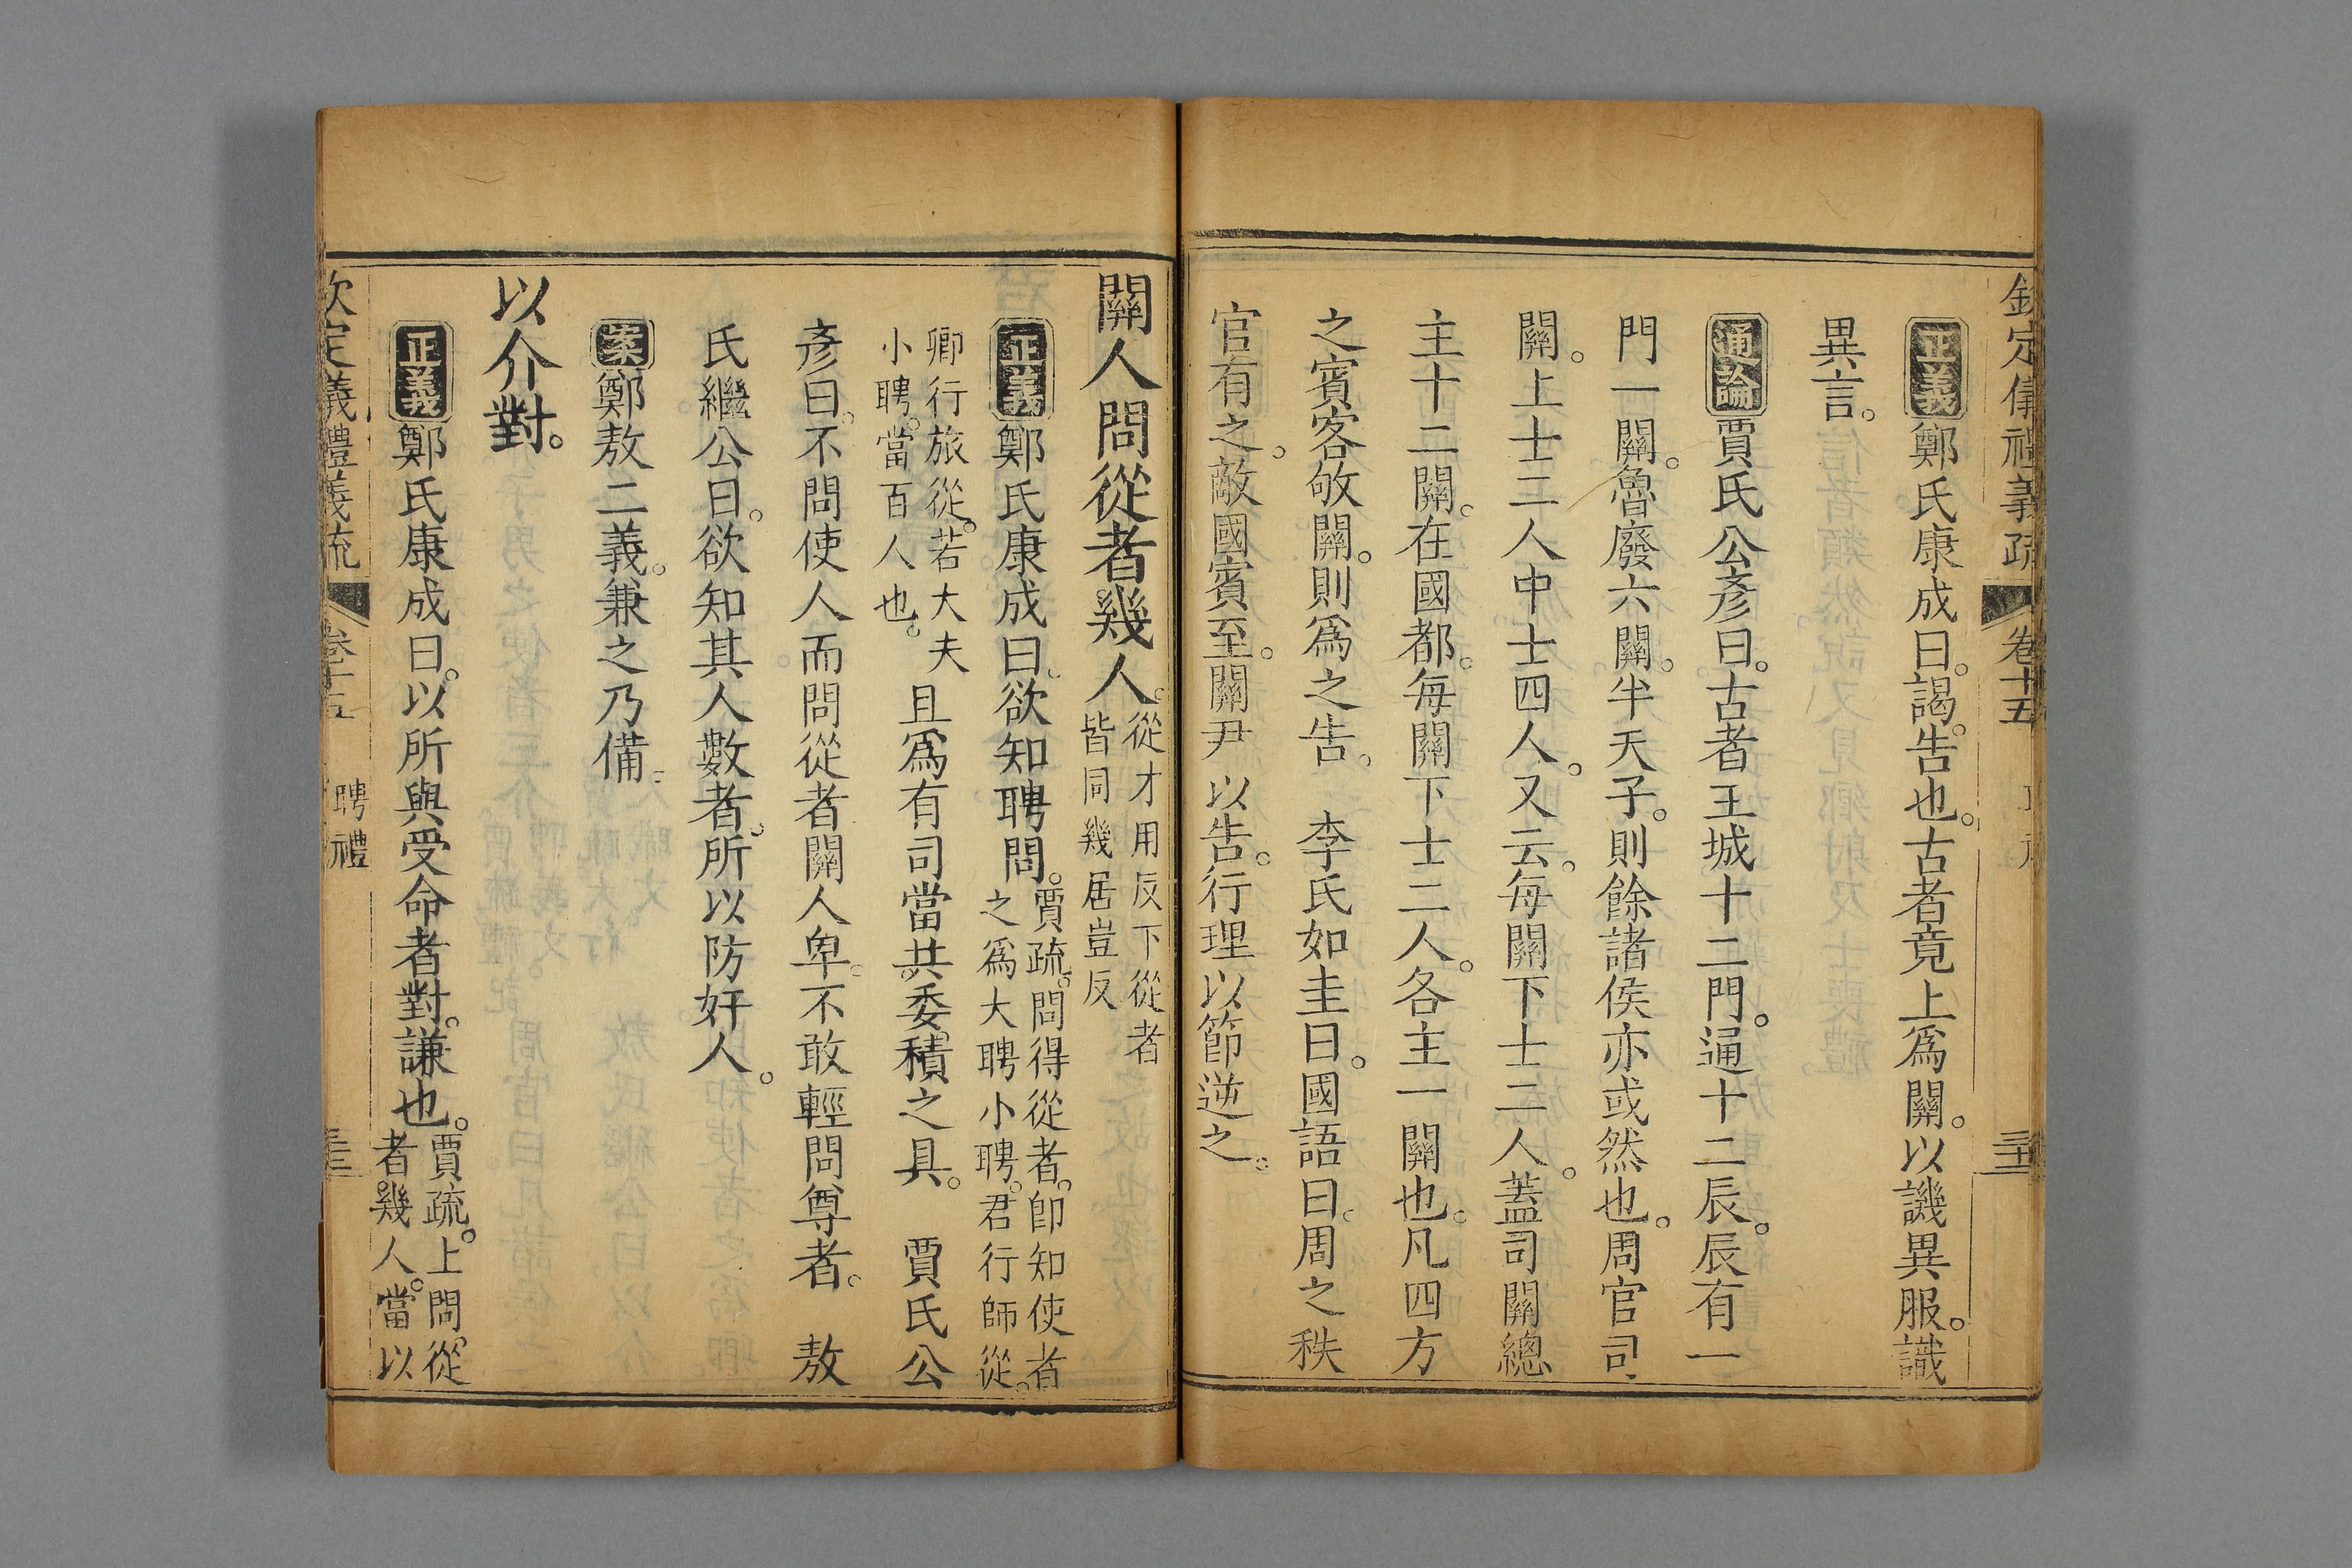 欽定儀禮義疏 卷十五
正義鄭氏康成曰。謁。告也。古者竟上爲關。以譏異服。識
異言。
通論賈氏公彥曰。古者王城十二門。通十二辰。辰有一
門一關。魯廢六關。半天子。則餘諸侯亦或然也。周官司
關。上士二人中士四人。又云。每關下士二人。蓋司關總
主十二關。在國都。每關下士二人。各主一關也。凡四方
之賓客敂關。則爲之告。 李氏如圭曰。國語曰。周之秩
官有之。敵國賓至。關尹以告。行理以節逆之。
關人問從者幾人。從才用反下從者
皆同幾居豈反
正義鄭氏康成曰。欲知聘問。賈疏。問得從者。卽知使者
之爲大聘小聘。君行師從。
卿行旅從。若大夫
小聘。當百人也。且爲有司當共委積之具。 賈氏公
彥曰。不問使人而問從者關人卑。不敢輕問尊者。 敖
氏繼公曰。欲知其人數者。所以防奸人。
案鄭敖二義。兼之乃備
以介對。
正義鄭氏康成曰。以所與受命者對。謙也。賈疏。上問從
者幾人。當以
欽定儀禮義疏 卷十五 聘禮